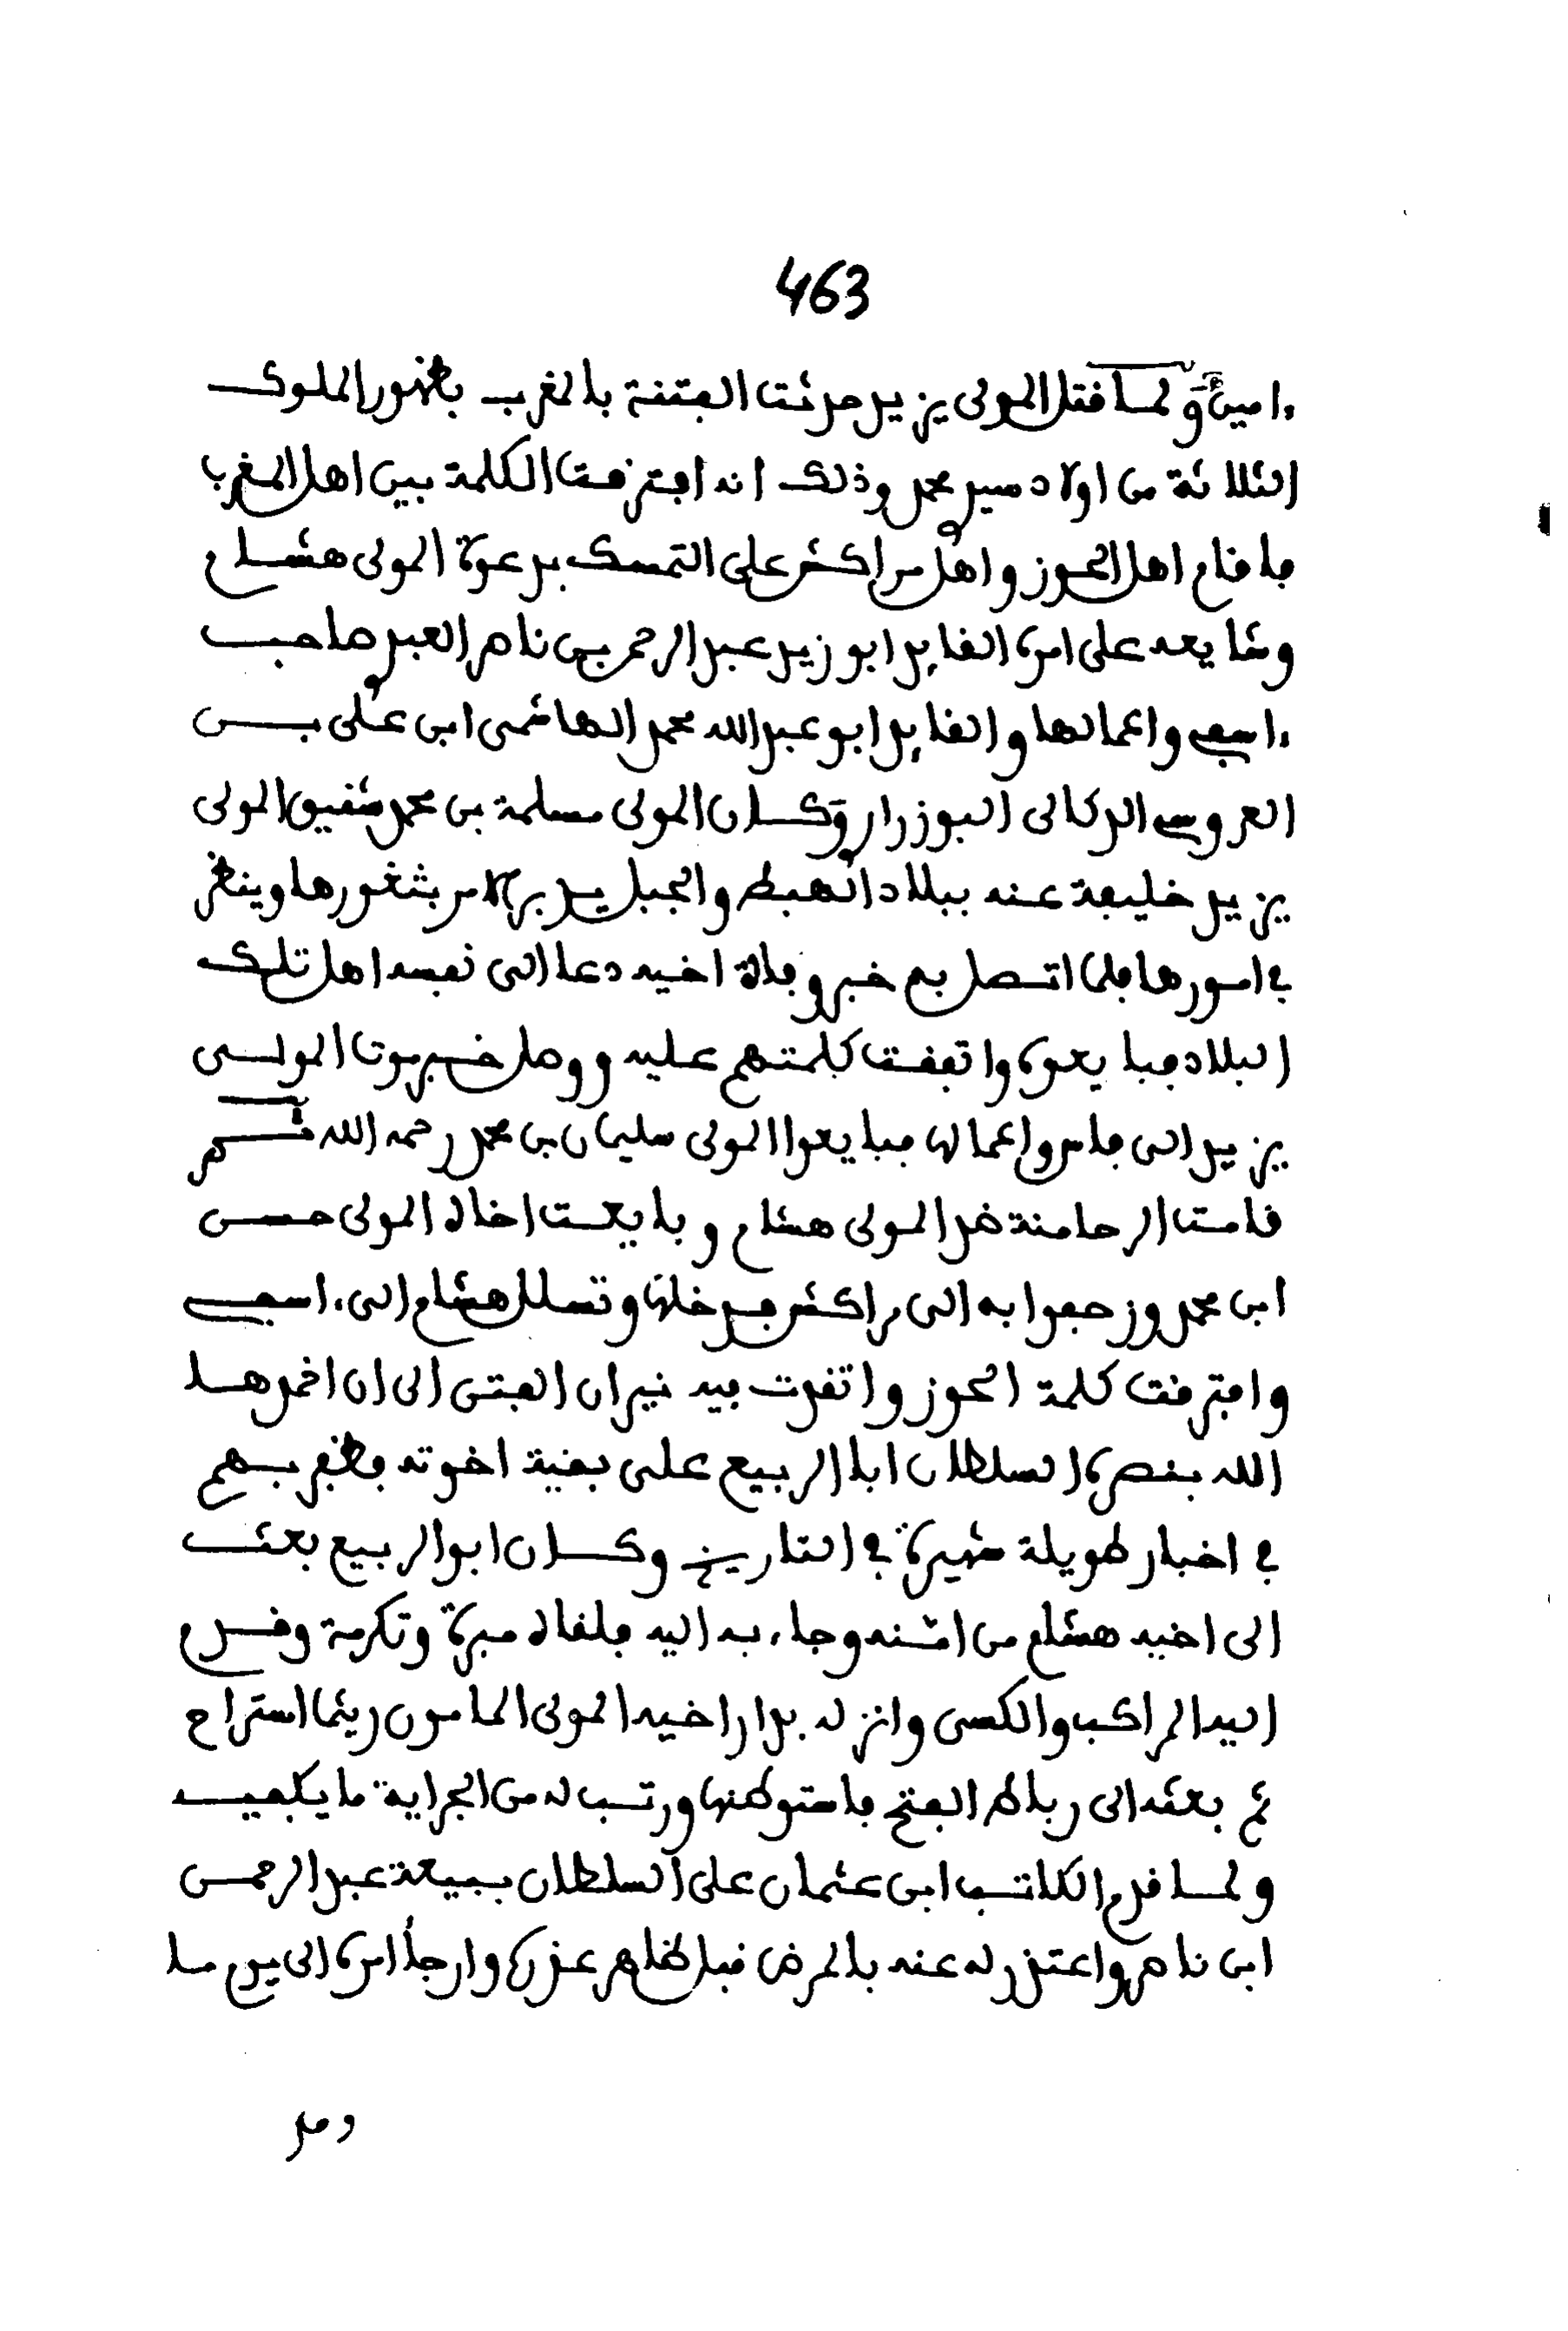 463
ءامين ولما قتل المولى يزيد حدثت الفتنة بالمغرب بظهور الملوك
الثلاثة من اولاد سيد محمد وذلك انه افترقت الكلمة بين اهل المغرب
فاقام اهل الحوز واهل مراكش على التمسك بدعوة المولى هشام
وشايعه على امره القايد ابو زيد عبد الرحمن بن ناصر العبدي صاحب
ءاسفي واعمالها والقايد ابو عبد الله محمد الهاشمي ابن علي بن
العروسي الدكالي البوزراري وكان المولى مسلمة بن محمد شقيق المولى
يزيد خليفة عنه ببلاد الهبط والجبل يدبر الامر بثغورها وينظر
في امورها فلما اتصل به خبر وفاة اخيه دعا الى نفسه اهل تلك
البلاد فبايعوه واتفقت كلمتهم عليه ووصل خبر موت المولى
يزيد الى فاس واعمالها فبايعوا المولى سليمان بن محمد رحمه الله ثم
قامت الرحامنة ضد المولى هشام وبايعت اخاه المولى حسن
ابن محمد وزحفوا به الى مراكش فدخلها وتسلل هشام الى ءاسفي
وافترقت كلمة الحوز واتقدت فيه نيران الفتن الى ان اخمدها
الله بنصره السلطان ابا الربيع على بقية اخوته فظفر بهم
في اخبار طويلة شهيرة في التاريخ وكان ابو الربيع بعث
الى اخيه هشام من امنه وجاء به اليه فلقاه مبرة وتكرمة وقدم
اليه المراكب والكسى وانزله بدار اخيه المولى المامون ريثما استراح
ثم بعثه الى رباط الفتح فاستوطنها ورتب له من الجراية ما يكفيه
ولما قدم الكاتب ابن عثمان على السلطان ببيعة عبد الرحمن
ابن ناصر واعتذر له عنه بالمرض قبل ظاهر عذره وارجأ امره الى يوم ما
ومد